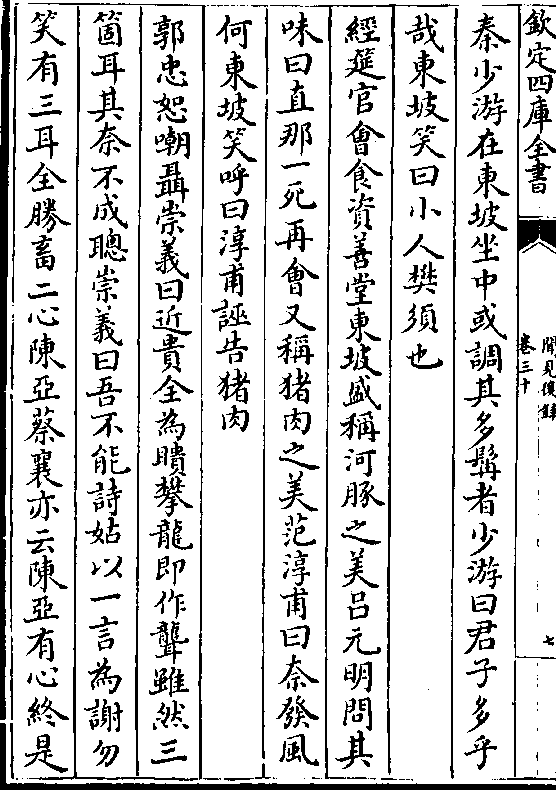 欽定四庫全書
聞見後錄
卷三十
七
秦少游在東坡坐中或調其多髯者少游曰君子多乎
哉東坡笑曰小人樊須也
經筵官會食資善堂東坡盛稱河豚之美呂元明問其
味曰直那一死再會又稱猪肉之美范淳甫曰奈發風
何東坡笑呼曰淳甫誣告猪肉
郭忠恕嘲聶崇義曰近貴全為聵攀龍即作聾雖然三
箇耳其奈不成聰崇義曰吾不能詩姑以一言為謝勿
笑有三耳全勝畜二心陳亞蔡襄亦云陳亞有心終是